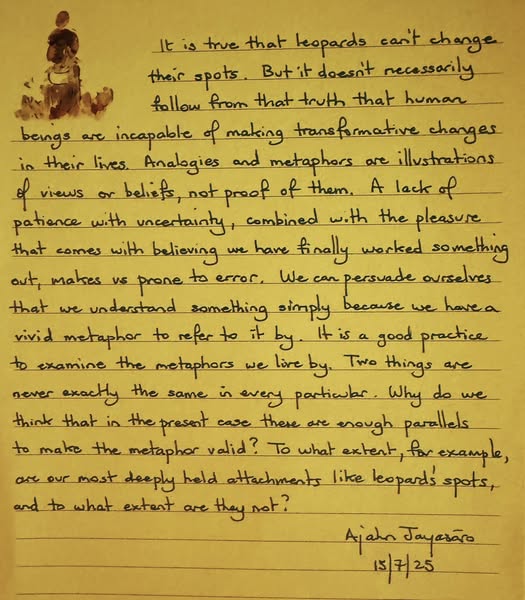 It is true that leopards can't change
their spots. But it doesn't necessarily
follow from that truth that human
beings are incapable of making transformative changes
in their lives. Analogies and metaphors are illustrations
of views or beliefs, not proof of them. A lack of
patience with uncertainty, combined with the pleasure
that comes with believing we have finally worked something
out, makes us prone to error. We can persuade ourselves
that we understand something simply because we have a
vivid metaphor to refer to it by. It is a good practice
to examine the metaphors we live by. Two things are
never exactly the same in every particular. Why do we
think that in the present case there are enough parallels
to make the metaphor valid? To what extent, for example,
are our most deeply held attachments like leopard's spots,
and to what extent are they not?
Ajahn Jayasāro
15/7/25